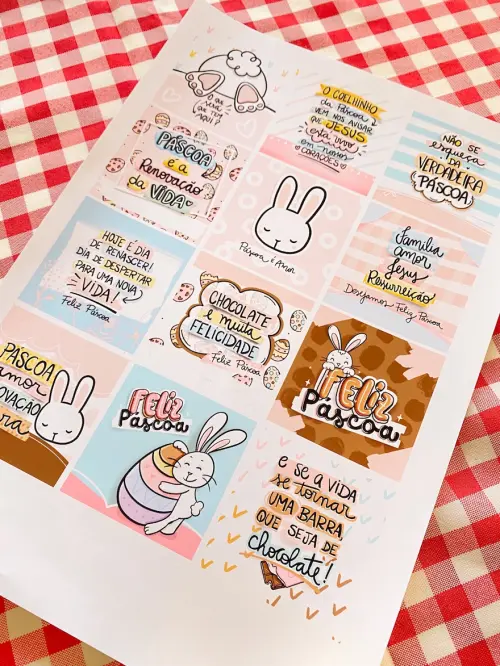 O QUE
será
QUE TEM
AQUI?
O COELHINHO
da Páscoa
VEM NOS AVISAR
QUE JESUS
está vivo
em nossos
CORAÇÕES
NÃO SE
esqueça da
VERDADEIRA
PÁSCOA
PÁSCOA
é a
Renovação
da VIDA
Páscoa é Amor
Família
amor
Jesus
Ressurreição
Desejamos Feliz Páscoa
HOJE É DIA
DE RENASCER!
DIA DE DESPERTAR
PARA UMA NOVA
VIDA!
Feliz Páscoa
CHOCOLATE
e muita
FELICIDADE
Feliz Páscoa
FELIZ
Páscoa
PÁSCOA
amor
FELIZ
Páscoa
e se a VIDA
se tornar
UMA BARRA,
QUE SEJA DE
chocolate!